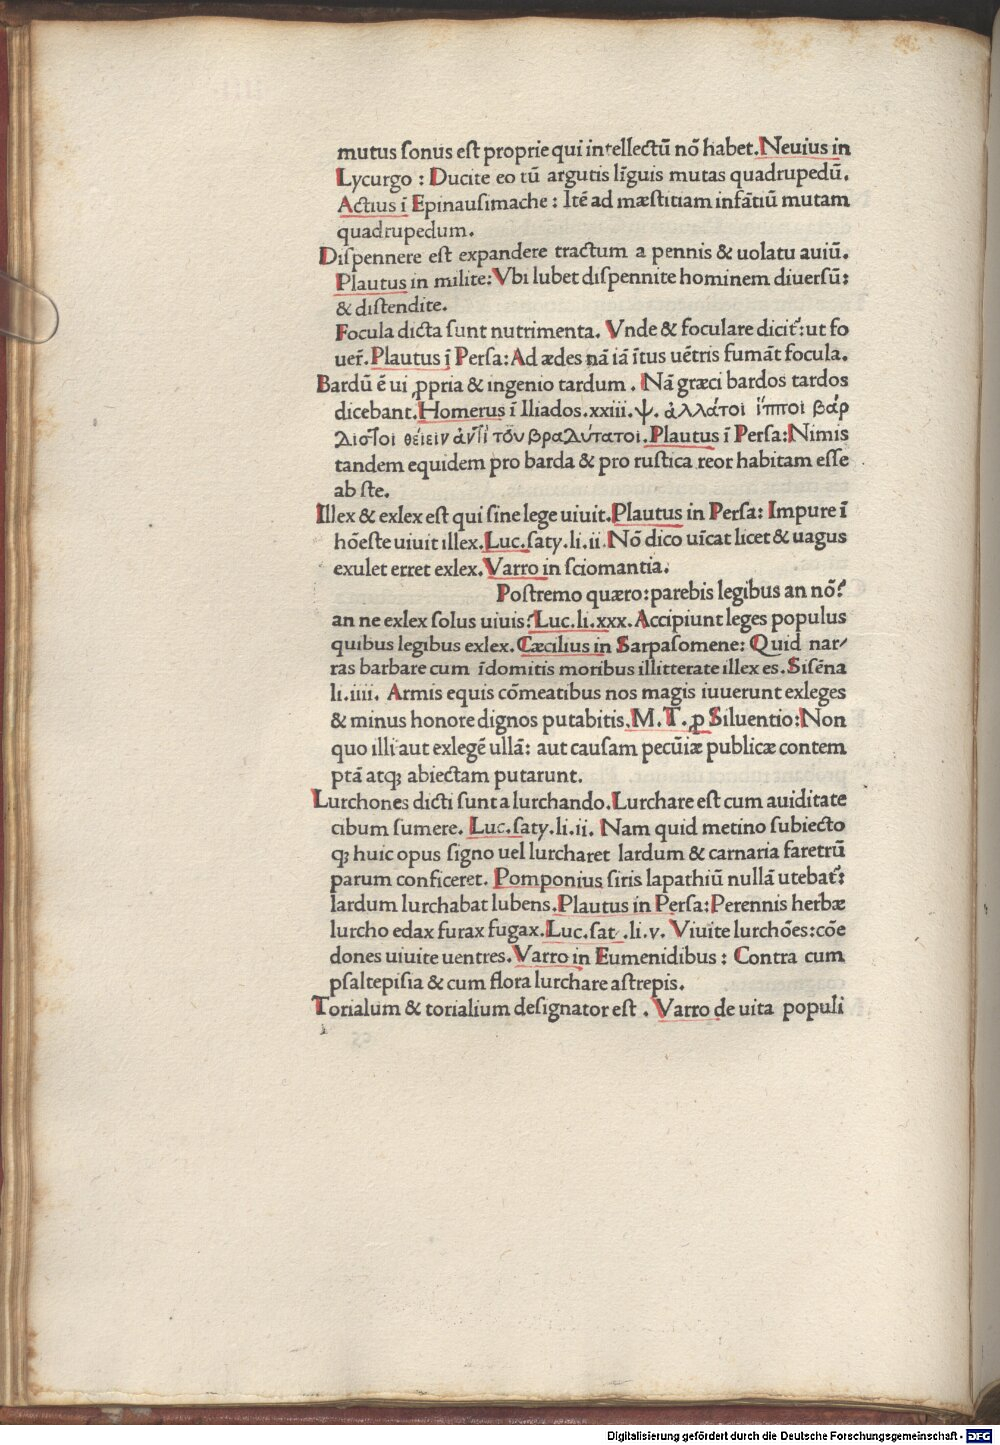 mutus sonus est proprie qui intellectũ nõ habet. Neuius in
Lycurgo : Ducite eo tũ argutis lĩguis mutas quadrupedũ.
Actius ĩ Epinausimache : Itẽ ad mæstitiam infãtiũ mutam
quadrupedum.
Dispennere est expandere tractum a pennis & uolatu auiũ.
Plautus in milite: Vbi lubet dispennite hominem diuersũ:
& distendite.
Focula dicta sunt nutrimenta. Vnde & foculare dicit᷑: ut fo
uer᷑. Plautus ĩ Persa: Ad ædes nã iã ĩtus uẽtris fumãt focula.
Bardũ ẽ ui ꝓpria & ingenio tardum . Nã græci bardos tardos
dicebant. Homerus ĩ Iliados.xxiii.ψ. ἀλλάτοι ἵπποι βάρ
διστοι θείειν ἀντὶ τὸυ βραδύτατοι. Plautus ĩ Persa: Nimis
tandem equidem pro barda & pro rustica reor habitam esse
ab ste.
Illex & exlex est qui sine lege uiuit. Plautus in Persa: Impure ĩ
hõeste uiuit illex. Luc.saty.li.ii. Nõ dico uĩcat licet & uagus
exulet erret exlex. Varro in sciomantia.
Postremo quæro: parebis legibus an nõ?
an ne exlex solus uiuis? Luc.li.xxx. Accipiunt leges populus
quibus legibus exlex. Cæcilius in Sarpasomene: Quid nar/
ras barbare cum ĩdomitis moribus illitterate illex es. Sisẽna
li.iiii. Armis equis cõmeatibus nos magis iuuerunt exleges
& minus honore dignos putabitis. M.T. ꝓ Siluentio: Non
quo illi aut exlegẽ ullã: aut causam pecũiæ publicæ contem
ptã atq; abiectam putarunt.
Lurchones dicti sunt a lurchando. Lurchare est cum auiditate
cibum sumere. Luc.saty.li.ii. Nam quid metino subiecto
q; huic opus signo uel lurcharet lardum & carnaria faretrũ
parum conficeret. Pomponius siris lapathiũ nullã utebat᷑:
lardum lurchabat lubens. Plautus in Persa: Perennis herbæ
lurcho edax furax fugax. Luc.sat .li.v. Viuite lurchões: cõe
dones uiuite uentres. Varro in Eumenidibus : Contra cum
psaltepisia & cum flora lurchare astrepis.
Torialum & torialium designator est . Varro de uita populi
Digitalisierung gefördert durch die Deutsche Forschungsgemeinschaft - DFG